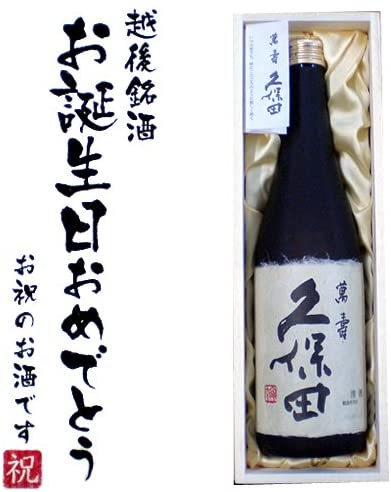 越後銘酒
お誕生日おめでとう
お祝のお酒です
祝
萬寿
久保田
萬寿
久保田
清酒